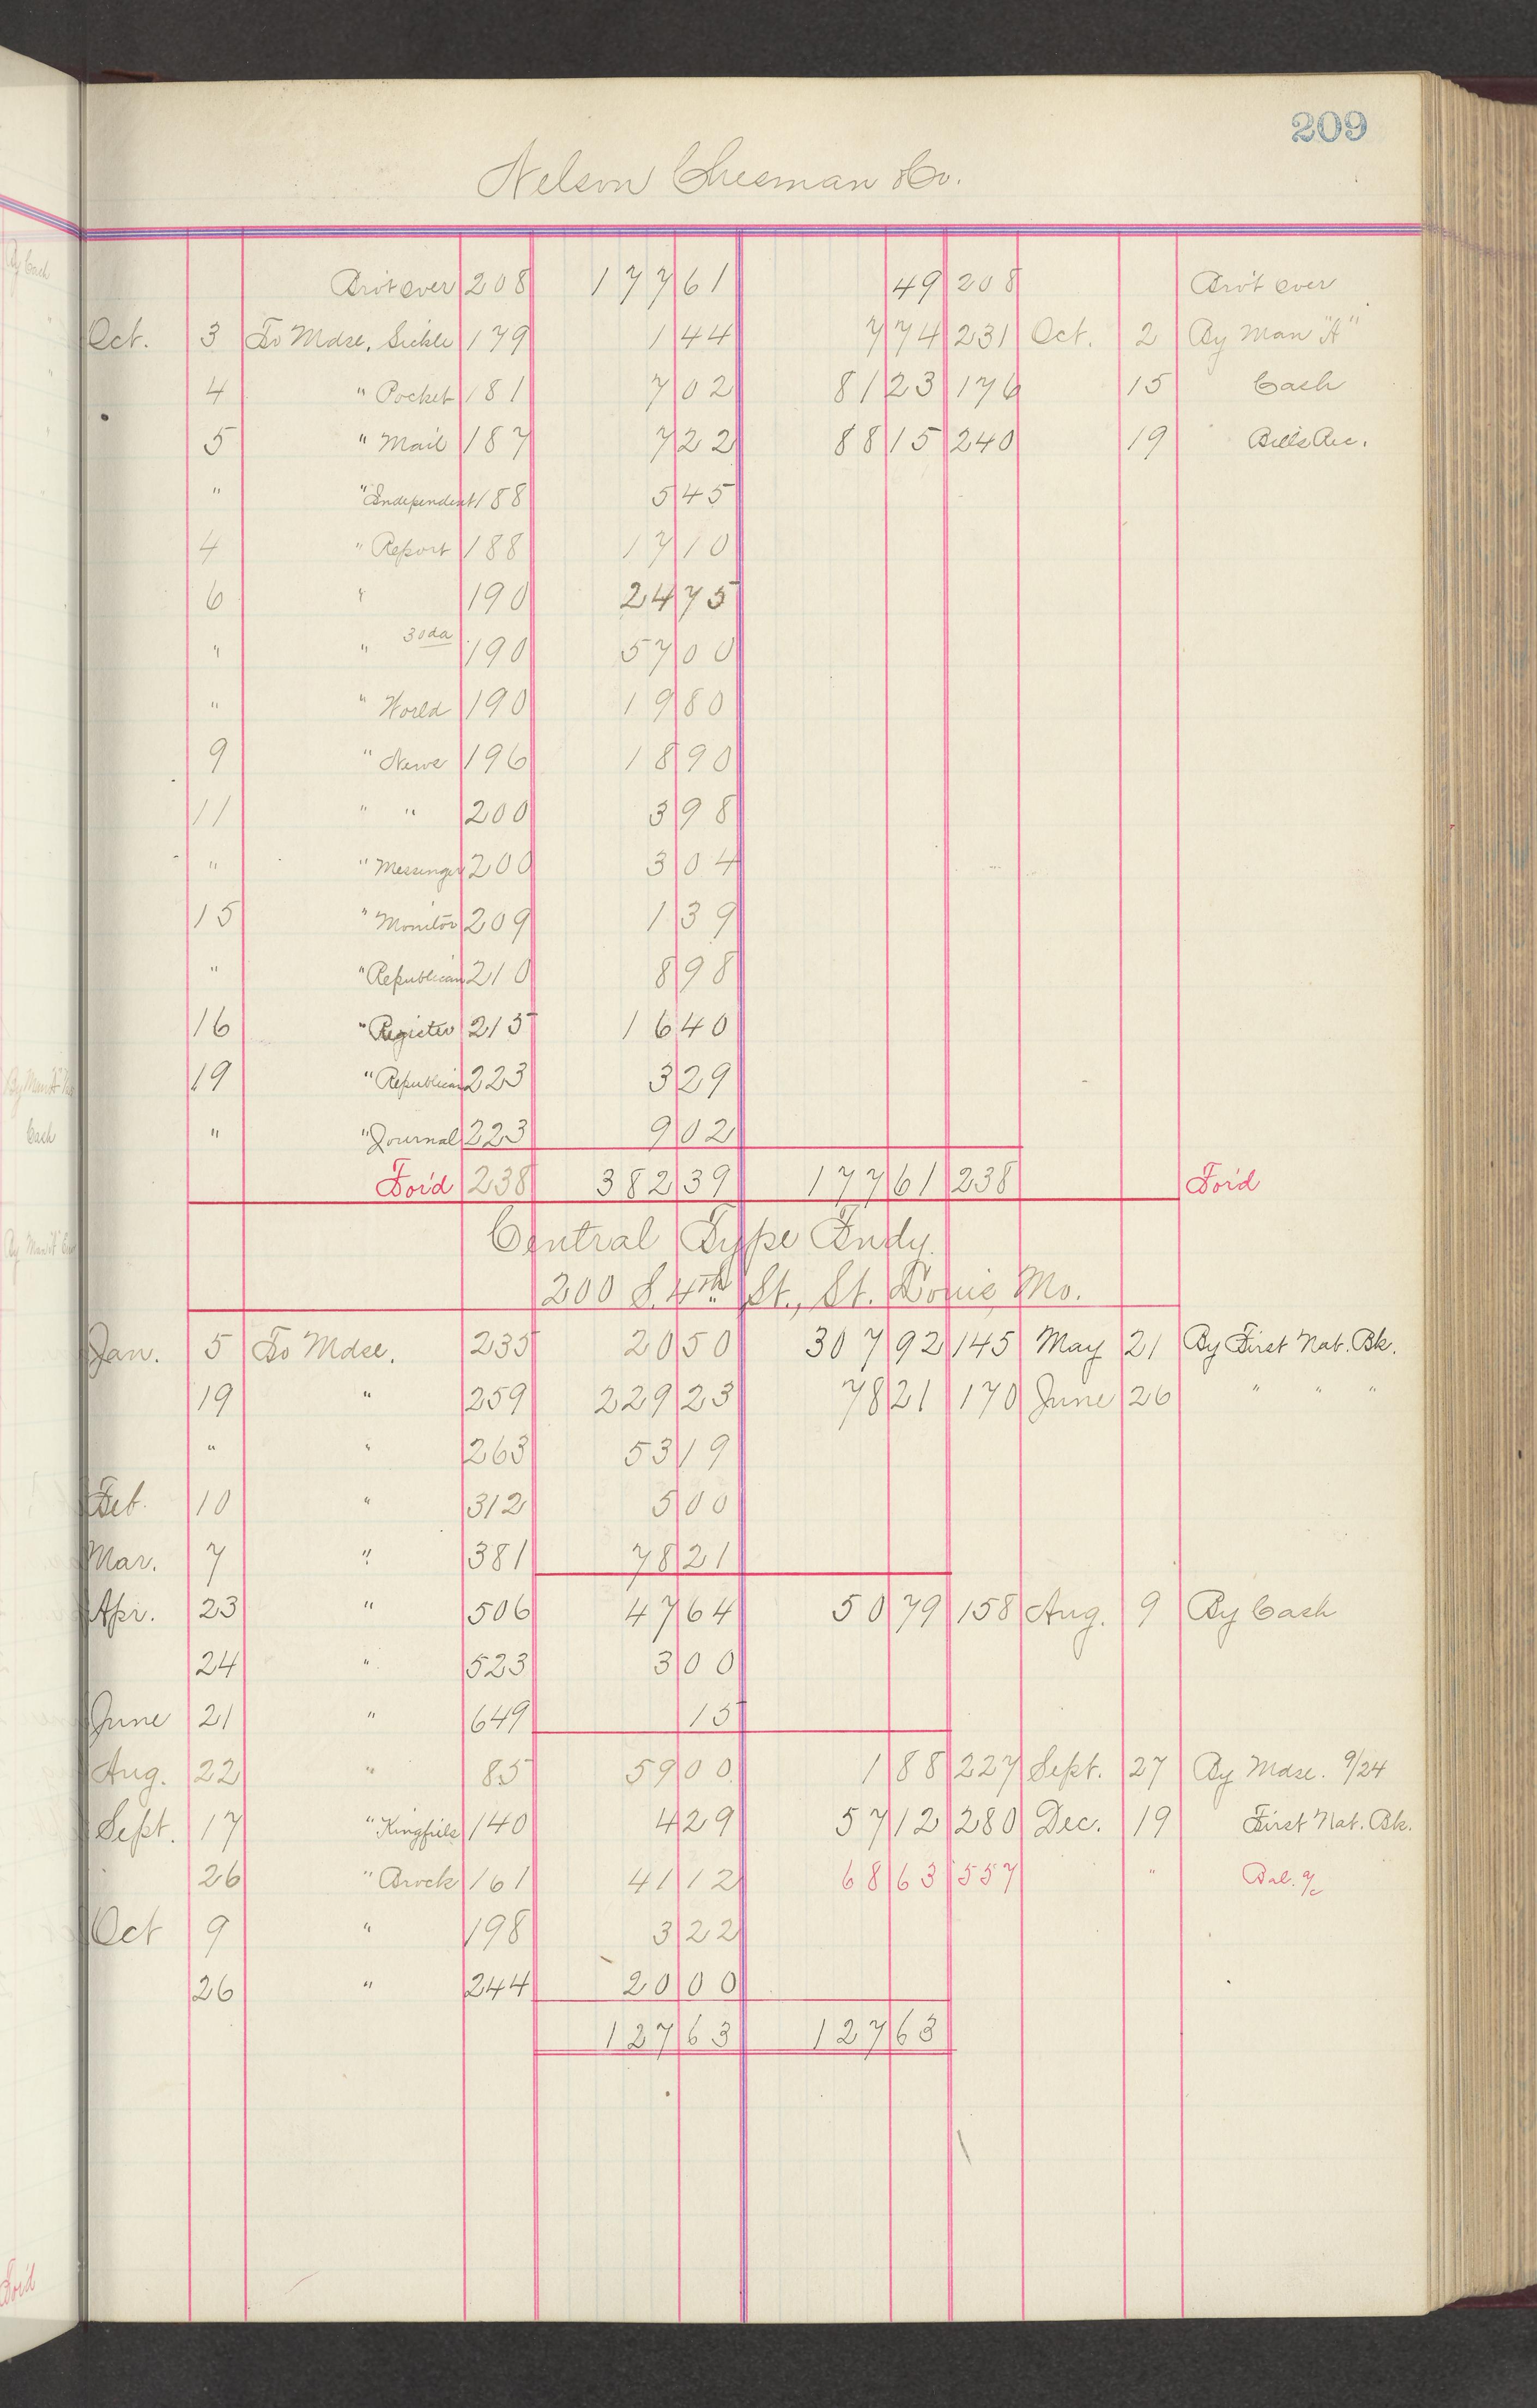 209
Nelson Chesman & Co.
Bro't over 208 177 61 49 208 Bro't over
Oct. 3 To Mdse. Sickle 179 1 44 7 74 231 Oct. 2 By Man "A"
4 " Pocket 181 7 02 81 23 176 15 Cash
5 " Mail 187 7 22 88 15 240 19 Bills Rec.
" " Independent 188 5 45
4 " Report 188 17 10
6 " 190 24 75
" " 30 da 190 57 00
" " World 190 19 80
9 " News 196 18 90
11 " " 200 3 98
" " Messenger 200 3 04
15 " Monitor 209 1 39
" " Republican 210 8 98
16 " Register 215 16 40
19 " Republican 223 3 29
" " Journal 223 9 02
For'd 238 382 39 177 61 238 For'd
Central Type Fndy.
200 S. 4th St., St. Louis Mo.
Jan. 5 To Mdse. 235 20 50 307 92 145 May 21 By First Nat. Bk.
19 " 259 229 23 78 21 170 June 26 " " "
" " 263 53 19
Feb. 10 " 312 5 00
Mar. 7 " 381 78 21
Apr. 23 " 506 47 64 50 79 158 Aug. 9 By Cash
24 " 523 3 00
June 21 " 649 15
Aug. 22 " 85 59 00 1 88 227 Sept. 27 By Mdse. 9/24
Sept. 17 " Kingfield 140 4 29 57 12 280 Dec. 19 First Nat. Bk.
26 " Brock 161 41 12 68 63 557 " Bal. a/c
Oct 9 " 198 3 22
26 " 244 20 00
127 63 127 63
By Cash
Cash
For'd